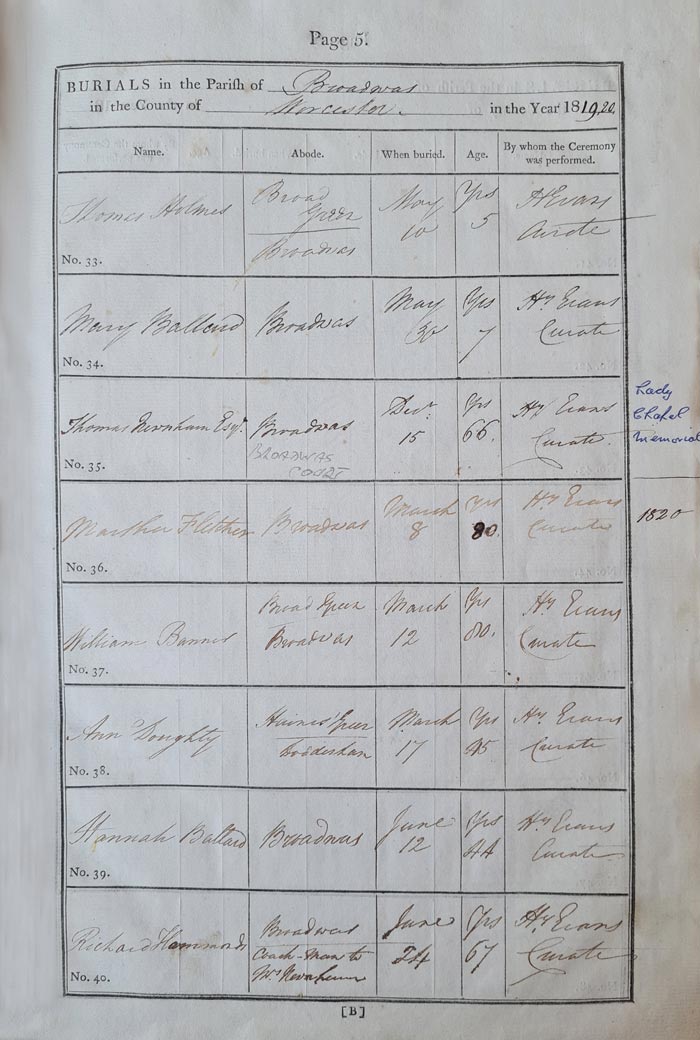 Page 5.
BURIALS in the Pariſh of Broadwas
in the County of Worcester. in the Year 1819,20.
Name. Abode. When buried. Age. By whom the Ceremony was performed.
Thomas Holmes
No. 33.
Broad
Green
Broadwas
May
10
Yrs
5
Hy Evans
Curate
Mary Ballard
No. 34.
Broadwas
May
30
Yrs
7
Hy Evans
Curate
Thomas Newnham Esqr.
No. 35.
Broadwas
BROADWAS
COURT
Decr.
15
Yrs
66.
Hy Evans
Curate.
Lady
Chapel
Memorial
Martha Fletcher
No. 36.
Broadwas
March
8
Yrs
80.
Hy Evans
Curate
1820
William Banner
No. 37.
Broad Green
Broadwas
March
12
Yrs
80.
Hy Evans
Curate
Ann Doughty
No. 38.
Haines' Green
March
17
Yrs
45
Hy Evans
Curate
Hannah Ballard
No. 39.
Broadwas
June
12
Yrs
44
Hy Evans
Curate
Richard Hammonds
No. 40.
Broadwas
Coach-Man to
Mrs Newnham
June
24
Yrs
67
Hy Evans
Curate
[B]